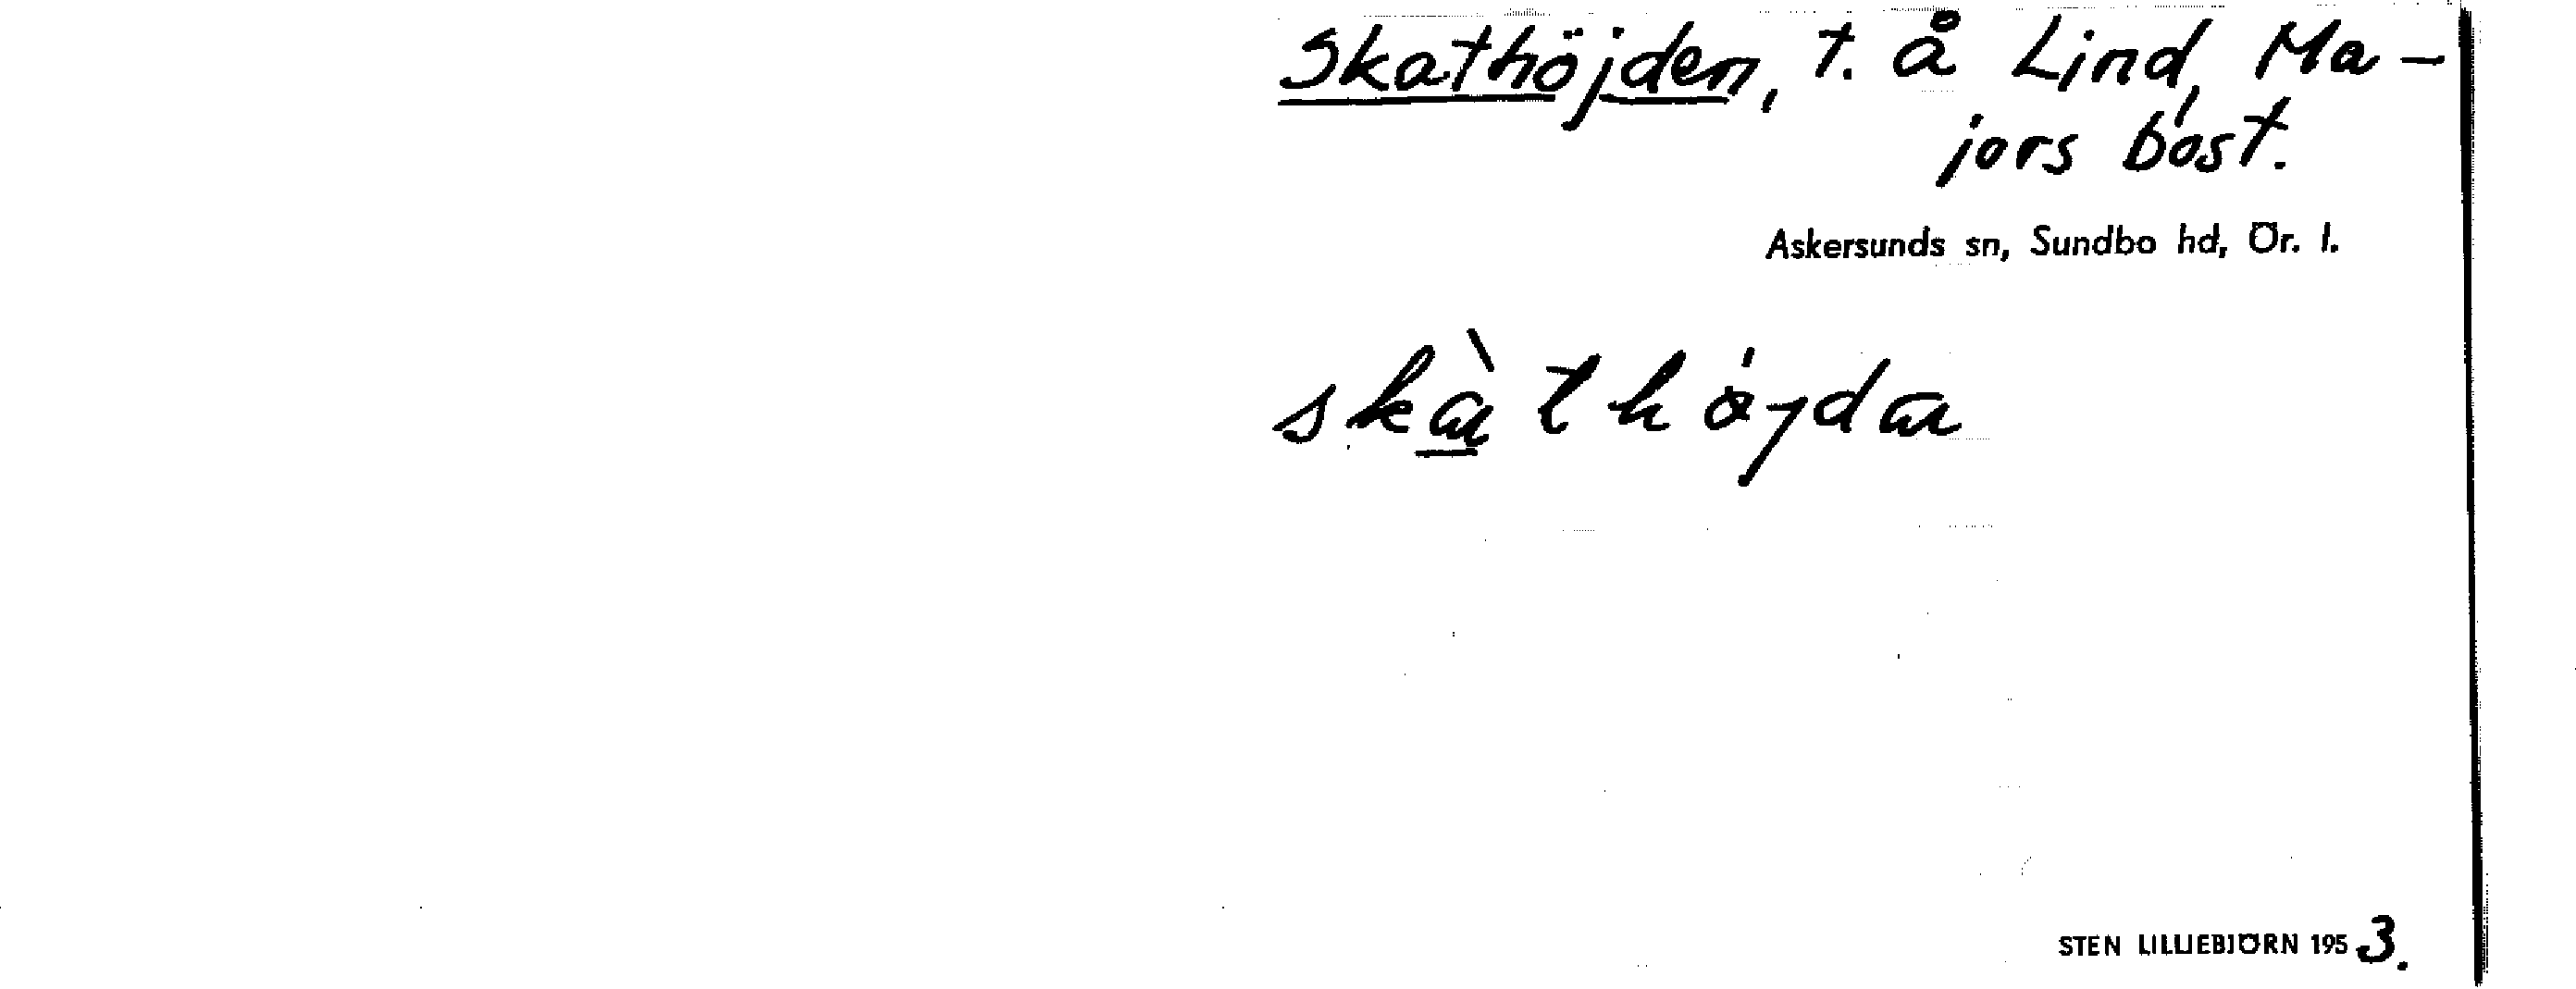 Skathöjden, t. å Lind, Ma-
jors bost.
Askersunds sn, Sundbo hd, Ör. l.
skàthöjda
STEN LILLIEBJÖRN 1953.